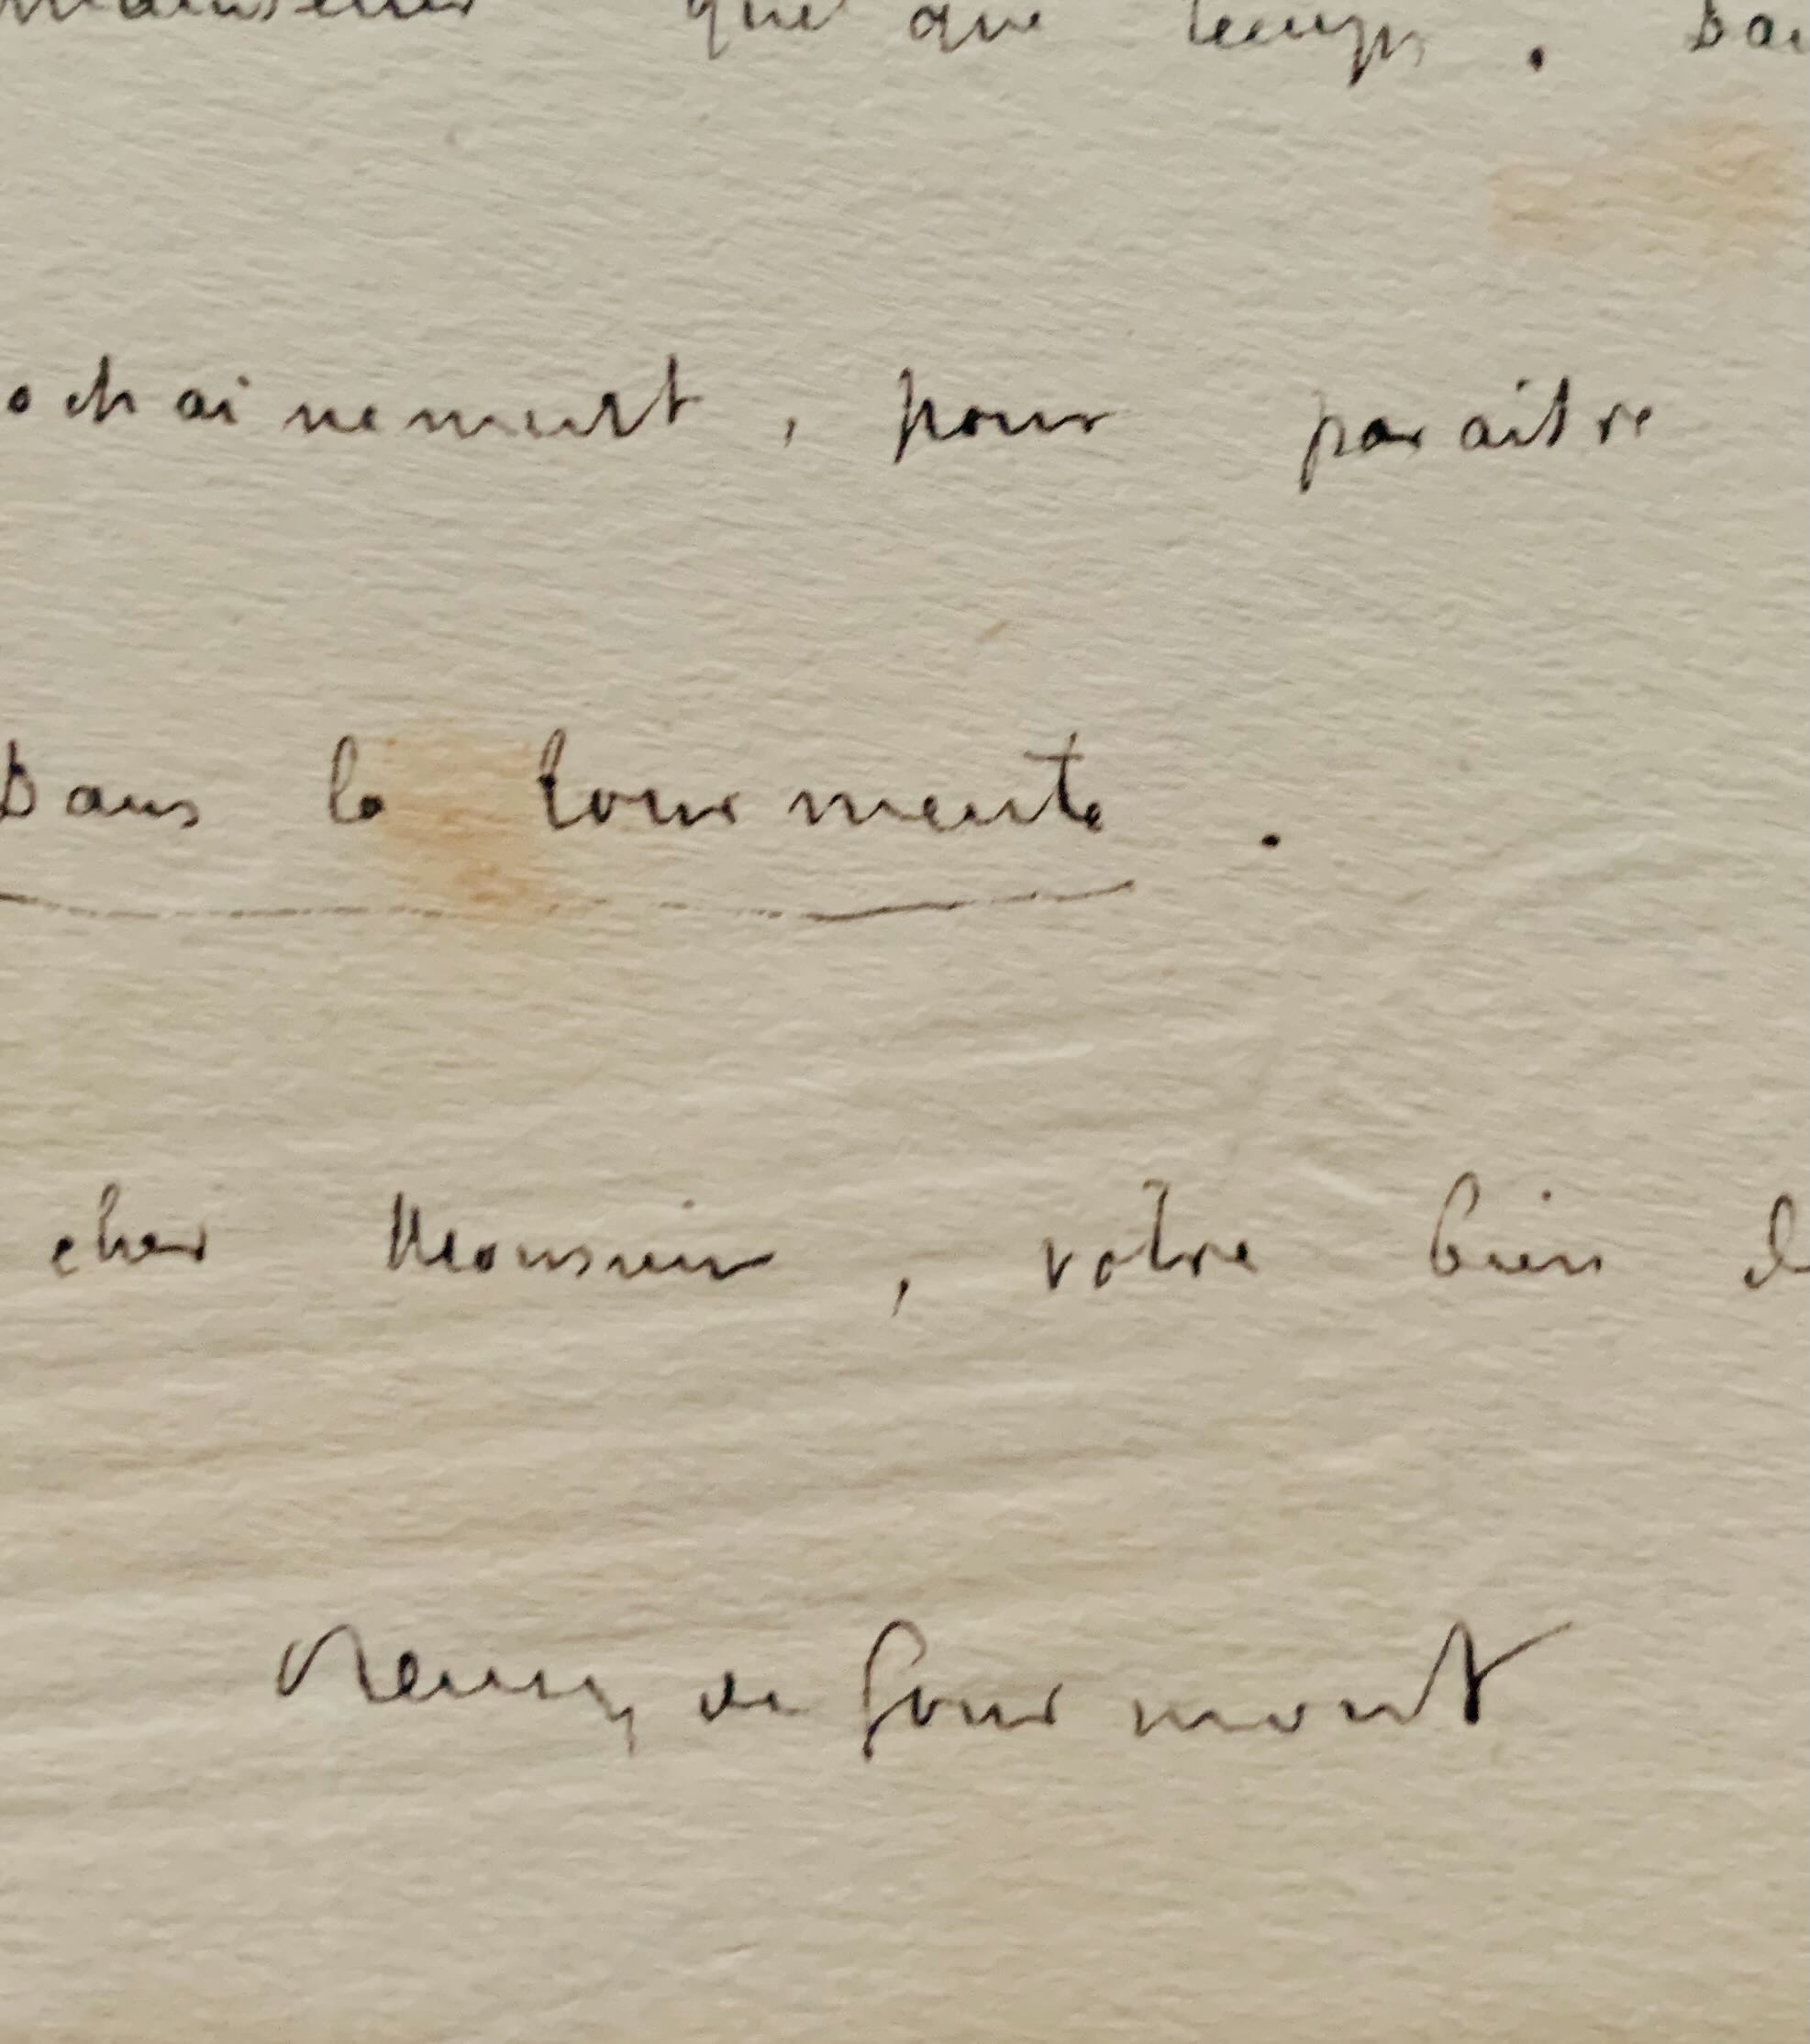 quelque temps. Dan
ochainement, pour paraître
Dans la tourmente.
cher Monsieur, votre bien d
Remy de Gourmont